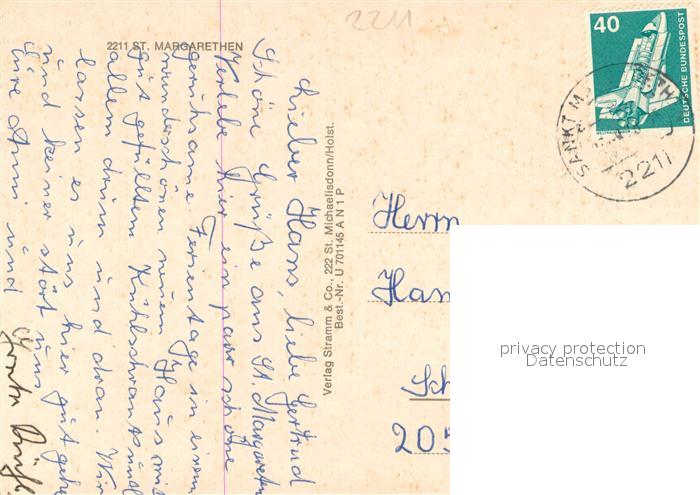 2211 ST. MARGARETHEN
2211
Lieber Hans, liebe Gertrud
Schöne Grüße aus St. Margareten
Verlebe hier ein paar schöne
geruhsame Ferientage in einem
wunderschönen neuen Haus mit
gut gefülltem Kühlschrank und
allem drum und dran. Wir
lassen es uns hier gut gehn
und keiner stört uns
Eure Anni und
Verlag Stramm & Co., 222 St. Michaelisdonn/Holst.
Best.-Nr. U 701145 A N 1 P
40
DEUTSCHE BUNDESPOST
SANKT M
2211
Herrn
Han
Sch
205
privacy protection
Datenschutz